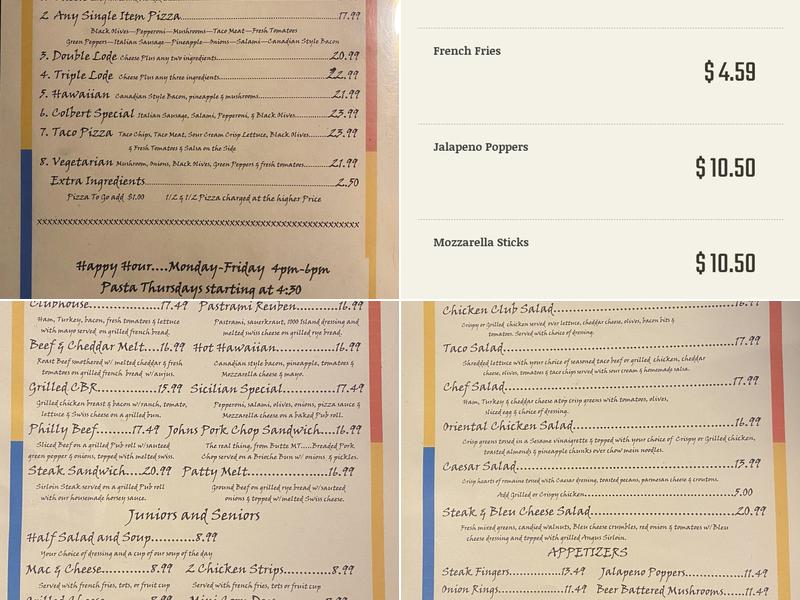 2. Any Single Item Pizza 17.99
Black Olives—Pepperoni—Mushrooms—Taco Meat—Fresh Tomatoes
Green Peppers—Italian Sausage—Pineapple—Onions—Salami—Canadian Style Bacon
3. Double Lode Cheese Plus any two ingredients 20.99
4. Triple Lode Cheese Plus any three ingredients 22.99
5. Hawaiian Canadian Style Bacon, pineapple & mushrooms 21.99
6. Colbert Special Italian Sausage, Salami, Pepperoni, & Black Olives 23.99
7. Taco Pizza Taco Chips, Taco Meat, Sour Cream Crisp Lettuce, Black Olives 23.99
& Fresh Tomatoes & Salsa on the Side
8. Vegetarian Mushroom, Onions, Black Olives, Green Peppers & fresh tomatoes 21.99
Extra Ingredients 2.50
Pizza To Go add $1.00 1/2 & 1/2 Pizza charged at the higher Price
Happy Hour....Monday-Friday 4pm-6pm
Pasta Thursdays starting at 4:30
French Fries
$ 4.59
Jalapeno Poppers
$ 10.50
Mozzarella Sticks
$ 10.50
Clubhouse 17.49 Pastrami Reuben 16.99
Ham, Turkey, bacon, fresh tomatoes & lettuce Pastrami, sauerkraut, 1000 Island dressing and
with mayo served on grilled french bread. melted swiss cheese on grilled rye bread.
Beef & Cheddar Melt 16.99 Hot Hawaiian 16.99
Roast Beef smothered w/ melted cheddar & fresh Canadian style bacon, pineapple, tomatoes &
tomatoes on grilled french bread w/aujus. Mozzarella cheese & mayo.
Grilled CBR 15.99 Sicilian Special 17.49
Grilled chicken breast & bacon w/ranch, tomato, Pepperoni, salami, olives, onions, pizza sauce &
lettuce & Swiss cheese on a grilled bun. Mozzarella cheese on a baked Pub roll.
Philly Beef 17.49 Johns Pork Chop Sandwich 16.99
Sliced Beef on a grilled Pub roll w/sauteed The real thing, from Butte MT.....Breaded Pork
green pepper & onions, topped with melted swiss. Chop served on a Brioche Bun w/ onions & pickles.
Steak Sandwich 20.99 Patty Melt 16.99
Sirloin Steak served on a grilled Pub roll Ground Beef on grilled rye bread w/sauteed
with our housemade horsey sauce. onions & topped w/melted Swiss cheese.
Juniors and Seniors
Half Salad and Soup 8.99
Your Choice of dressing and a cup of our soup of the day
Mac & Cheese 8.99 2 Chicken Strips 8.99
Served with french fries, tots, or fruit cup Served with french fries, tots or fruit cup
Grilled Cheese 8.99 Mini Corn Dogs 8.99
Chicken Club Salad 16.99
Crispy or Grilled chicken served over lettuce, cheddar cheese, olives, bacon bits &
tomatoes. Served with choice of dressing.
Taco Salad 17.99
Shredded lettuce with your choice of seasoned taco beef or grilled chicken, cheddar
cheese, olives, tomatoes & taco chips served with sour cream & homemade salsa.
Chef Salad 17.99
Ham, Turkey & cheddar cheese atop crisp greens with tomatoes, olives,
sliced egg & choice of dressing.
Oriental Chicken Salad 16.99
Crisp greens tossed in a Sesame vinaigrette & topped with your choice of Crispy or Grilled chicken,
toasted almonds & pineapple chunks over chow mein noodles.
Caesar Salad 13.99
Crisp hearts of romaine tossed with Caesar dressing, toasted pecans, parmesan cheese & croutons.
Add Grilled or Crispy chicken 5.00
Steak & Bleu Cheese Salad 20.99
Fresh mixed greens, candied walnuts, Bleu cheese crumbles, red onion & tomatoes w/Bleu
cheese dressing and topped with grilled Angus Sirloin.
APPETIZERS
Steak Fingers 13.49 Jalapeno Poppers 11.49
Onion Rings 11.49 Beer Battered Mushrooms 11.49